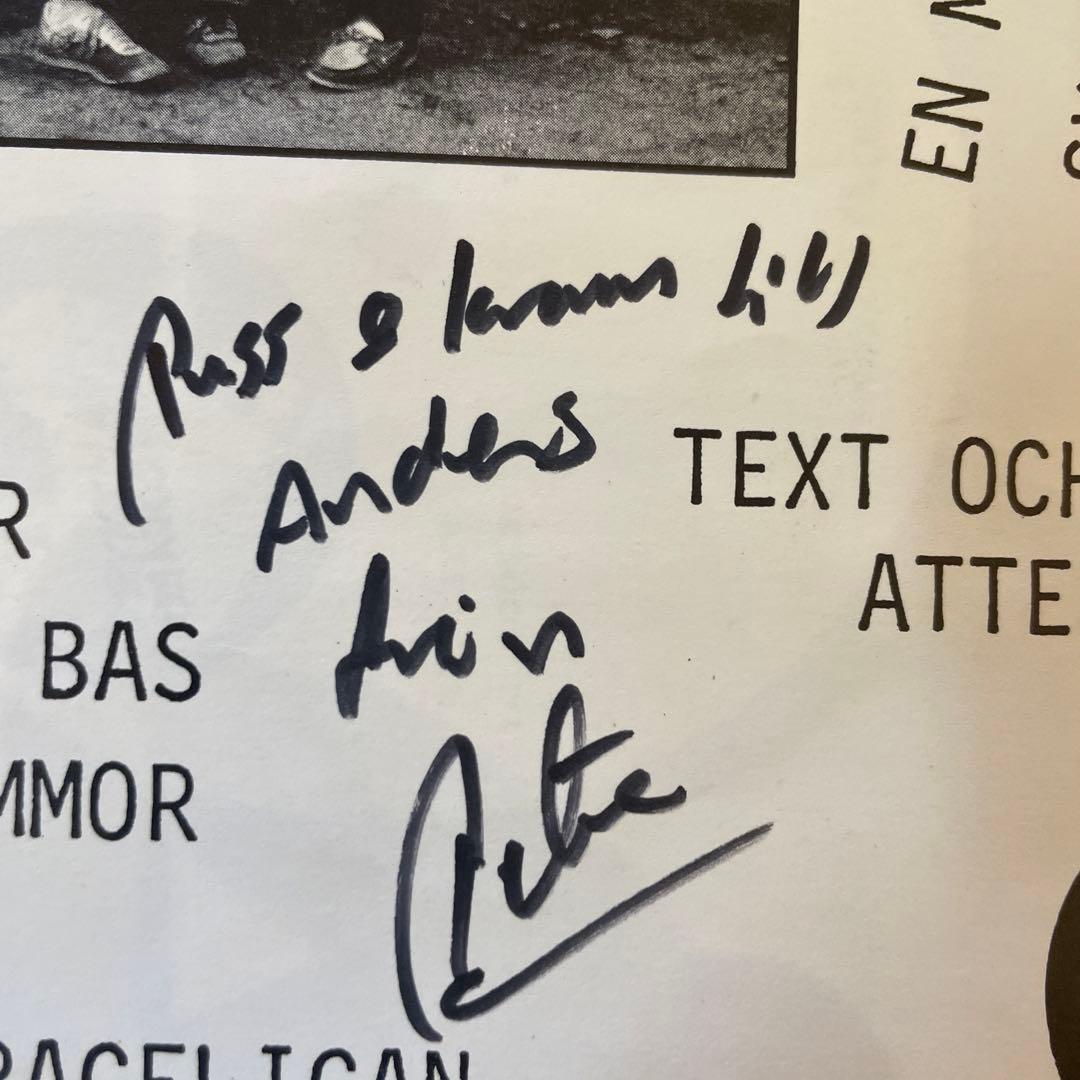 EN
Puss & kram till
Anders
från
TEXT OCH
ATTE
R
BAS
MMOR